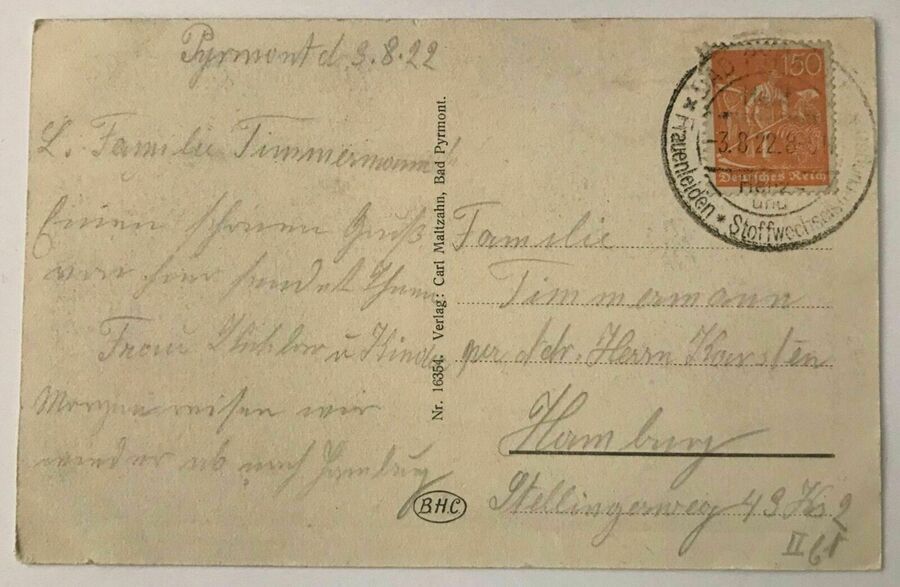 Pyrmont d. 3.8.22
L. Familie Timmermann!
Einen schönen Gruß
von hier sendet Ihnen
Frau u. Kinder
Morgen reisen wir
wieder ab nach Hamburg
Nr. 16354. Verlag: Carl Maltzahn, Bad Pyrmont.
B.H.C
150
Deutsches Reich
BAD
3.8.22.8-
Herz
und
* Frauenleiden * Stoffwechsel
Familie
Timmermann
per Adr. Herrn Karsten
Hamburg
Stellingerweg 49 Hs 2
II